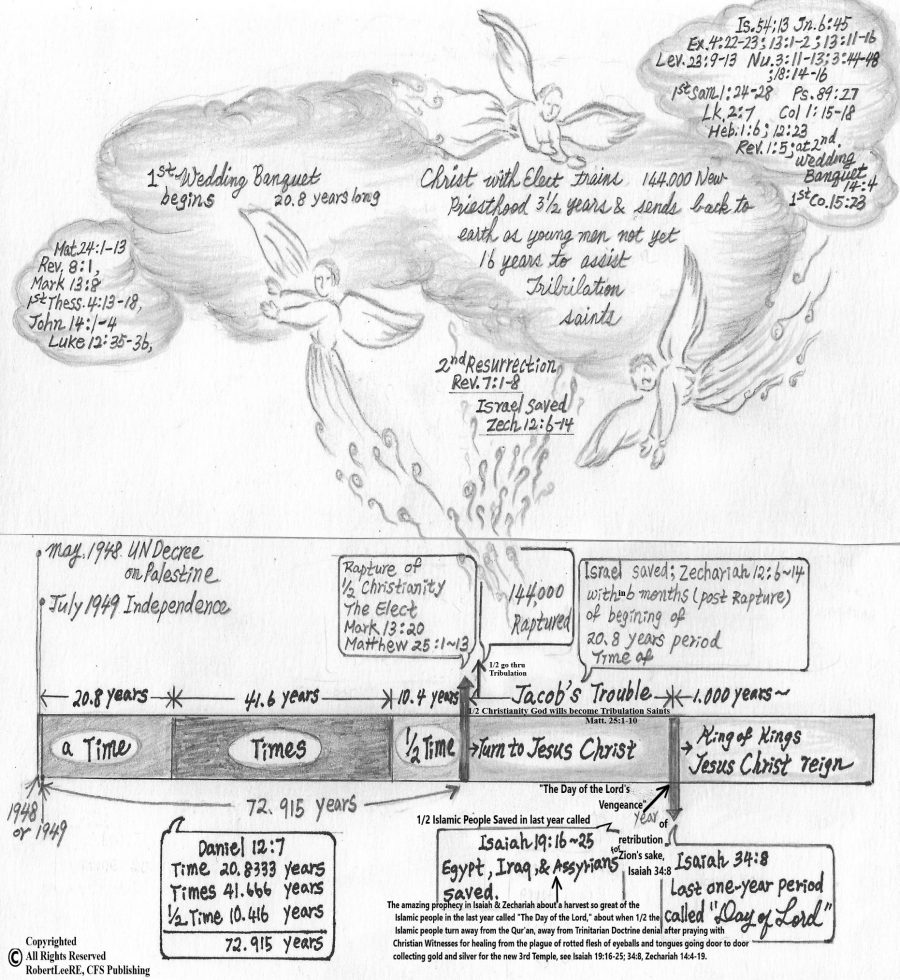 Is. 54:13 Jn. 6:45
Ex. 4:22-23; 13:1-2; 13:11-16
Lev. 23:9-13 Nu. 3:11-13; 3:44-48
; 18:14-16
1st Sam 1:24-28 Ps. 89:27
Lk. 2:7 Col 1:15-18
Heb. 1:6; 12:23
Rev. 1:5; at 2nd.
wedding
Banquet
14:4
1st Co. 15:23
1st Wedding Banquet
begins 20.8 years long
Christ with Elect trains 144.000 New
Priesthood 3 1/2 years & sends back to
earth as young men not yet
16 years to assist
Tribrilation
saints
Mat. 24:1-13
Rev. 8:1,
Mark 13:8
1st Thess. 4:13-18,
John 14:1-4
Luke 12:35-36,
2nd Resurrection
Rev. 7:1-8
Israel saved
Zech 12:6-14
may. 1948 UN Decree
on Palestine
July 1949 Independence
Rapture of
1/2 Christianity
The Elect
Mark 13:20
Matthew 25:1~13
144,000
Raptured
Israel saved; Zechariah 12:6~14
within 6 months (post Rapture)
of begining of
20.8 years period
Time of
1/2 go thru
Tribulation
20.8 years
41.6 years
10.4 years
Jacob's Trouble
1.000 years~
1/2 Christianity God wills become Tribulation Saints
Matt. 25:1-10
a Time
Times
1/2 Time
Turn to Jesus Christ
King of Kings
Jesus Christ reign
1948
or 1949
72.915 years
"The Day of the Lord's
Vengeance"
1/2 Islamic People Saved in last year called
year of
retribution
for Zion's sake,
Isaiah 34:8
Daniel 12:7
Time 20.8333 years
Times 41.666 years
1/2 Time 10.416 years
72.915 years
Isaiah 19:16~25
Egypt, Iraq, & Assyrians
saved.
Isaiah 34:8
Last one-year period
called "Day of Lord"
The amazing prophecy in Isaiah & Zechariah about a harvest so great of the
Islamic people in the last year called "The Day of the Lord," about when 1/2 the
Islamic people turn away from the Qur'an, away from Trinitarian Doctrine denial after praying with
Christian Witnesses for healing from the plague of rotted flesh of eyeballs and tongues going door to door
collecting gold and silver for the new 3rd Temple, see Isaiah 19:16-25; 34:8, Zechariah 14:4-19.
Copyrighted
© All Rights Reserved
RobertLeeRE, CFS Publishing